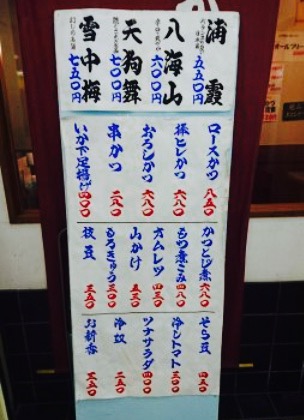 浦霞
五五〇円
八海山
六〇〇円
天狗舞
七〇〇円
雪中梅
七五〇円
ロースかつ 八五〇
棒ヒレかつ 六八〇
おろしかつ 六八〇
串かつ 二八〇
いか下足揚げ 四〇〇
かつとじ煮 六八〇
もつ煮こみ 四八〇
オムレツ 四三〇
山かけ 五三〇
もろきゅう 三〇〇
枝豆 三五〇
そら豆 四五〇
冷しトマト 三〇〇
ツナサラダ 四〇〇
冷奴 二五〇
お新香